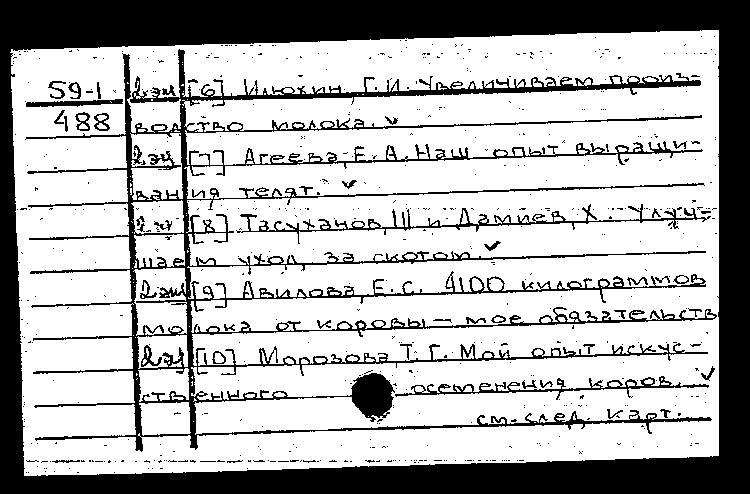 59-1 2 эк [6] Илюхин, Г.И. Увеличиваем произ-
488 водство молока. ✓
2 эк [7] Агеева, Е.А. Наш опыт выращи-
вания телят. ✓
2 эк [8] Тасуханов, Ш и Дамиев, Х. Улуч-
шаем уход за скотом. ✓
2 эк [9] Авилова, Е.С. 4100 килограммов
молока от коровы — мое обязательств
2 эк [10] Морозова, Т.Г. Мой опыт искус-
ственного осеменения коров. ✓
см. след. карт.